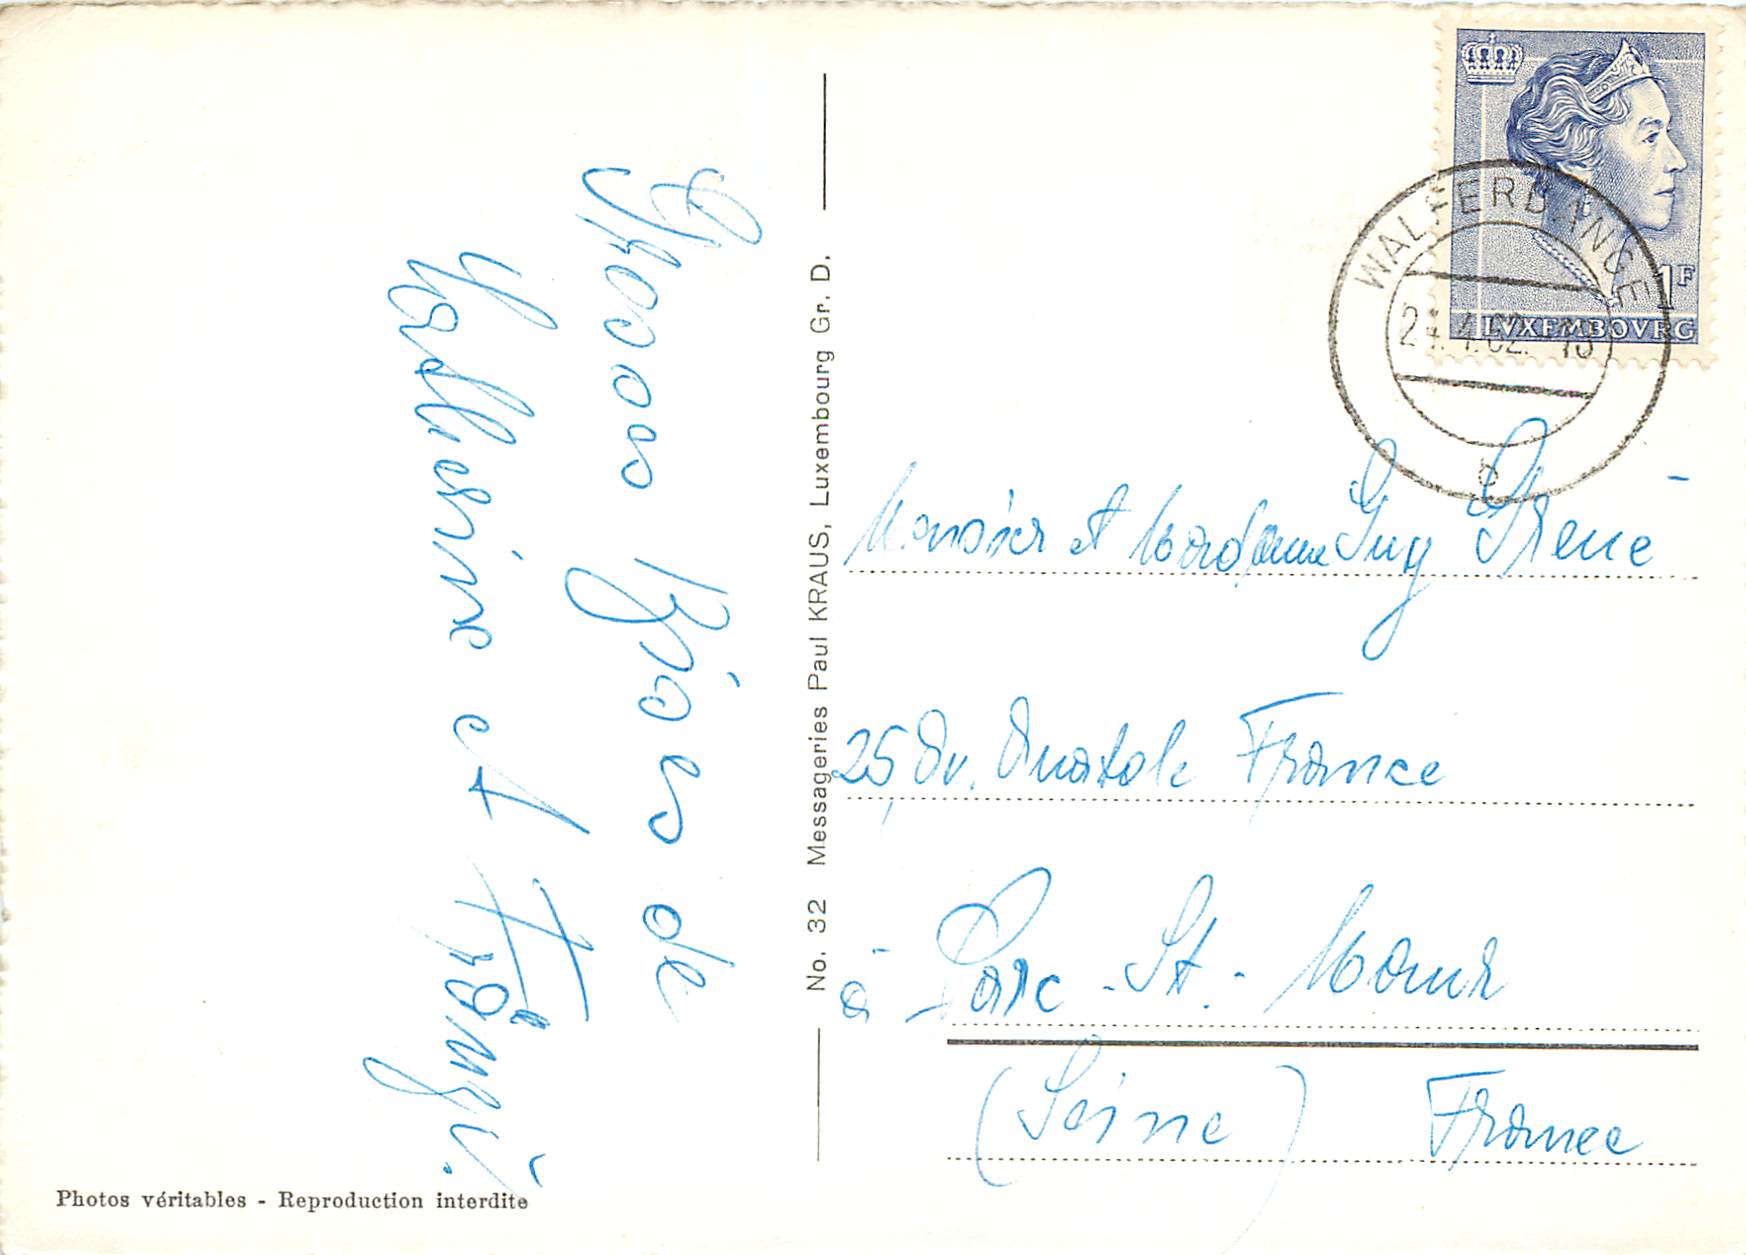 Grosses Bises de
Catherine et
No. 32 Messageries Paul KRAUS, Luxembourg Gr. D.
1F
LVXEMBOVRG
WALFERDANGE
b
Monsieur et Madame Guy
25, Av. Anatole France
à Parc - St. - Maur
(Seine) France
Photos véritables - Reproduction interdite